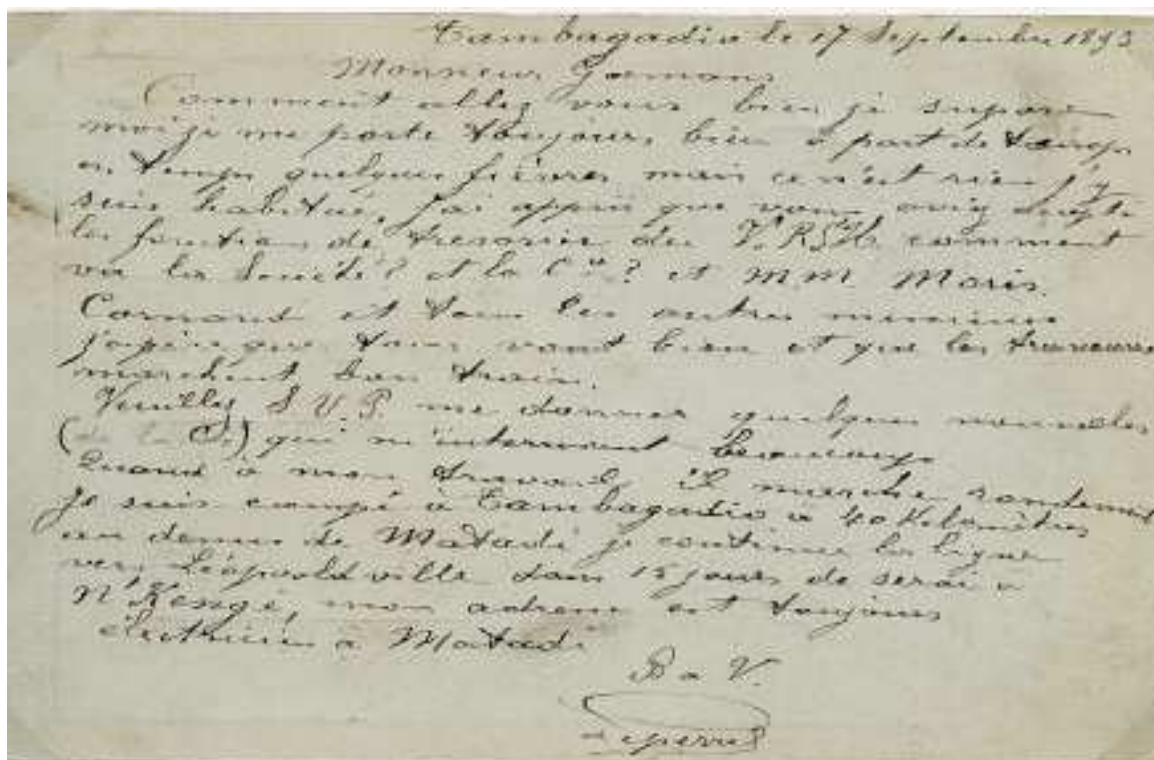 Tambagadio le 17 Septembre 1893
Monsieur
Comment allez vous bien je suppose
moi je me porte toujours bien à part de temps
en temps quelques fièvres mais ce n'est rien j'y
suis habitué, j'ai appris que vous aviez accepté
les fonction de tresorier du comment
va la Société? et la Cie? et MM. Moris
et tous les autres messieurs
j'espère que tous vont bien et que les travaux
marchent bon train.
Veuillez S.V.P. me donner quelques nouvelles
(de la Cie) qui m'intéressent beaucoup
Quand à mon travail, il marche rondement
je suis campé à Tambagadio à 40 Kilomètres
au dessus de Matadi je continue la ligne
vers Léopoldville dans 15 jours de serai a
N'Kengé, mon adresse est toujours
électricien à Matadi
B a V.